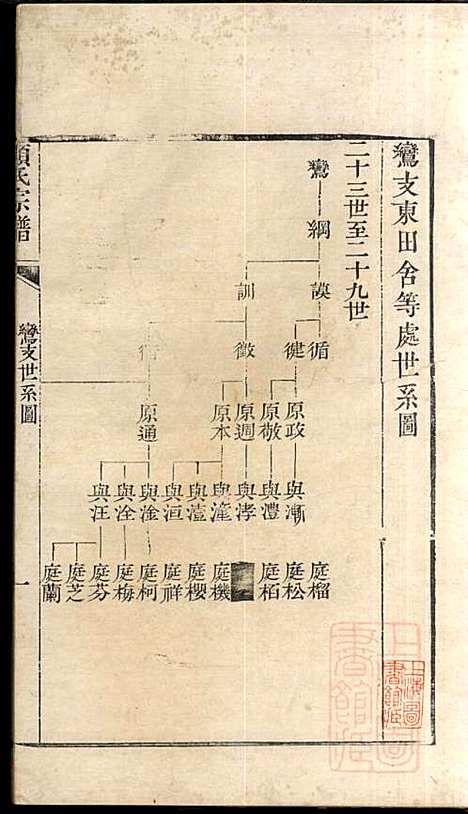 鸞支東田舍等處世系圖
二十三世至二十九世
鸞
綱
謨 訓
循 徤 徵
原政 原敬 原週 原本 原通
與漸 與澧 與涍 與潼 與澅 與洹 與淦 與洤 與汪
庭榴 庭松 庭栢 庭機 庭櫻 庭祥 庭柯 庭梅 庭芬 庭芝 庭蘭
氏宗譜
鸞支世系圖
一
上海圖書館藏